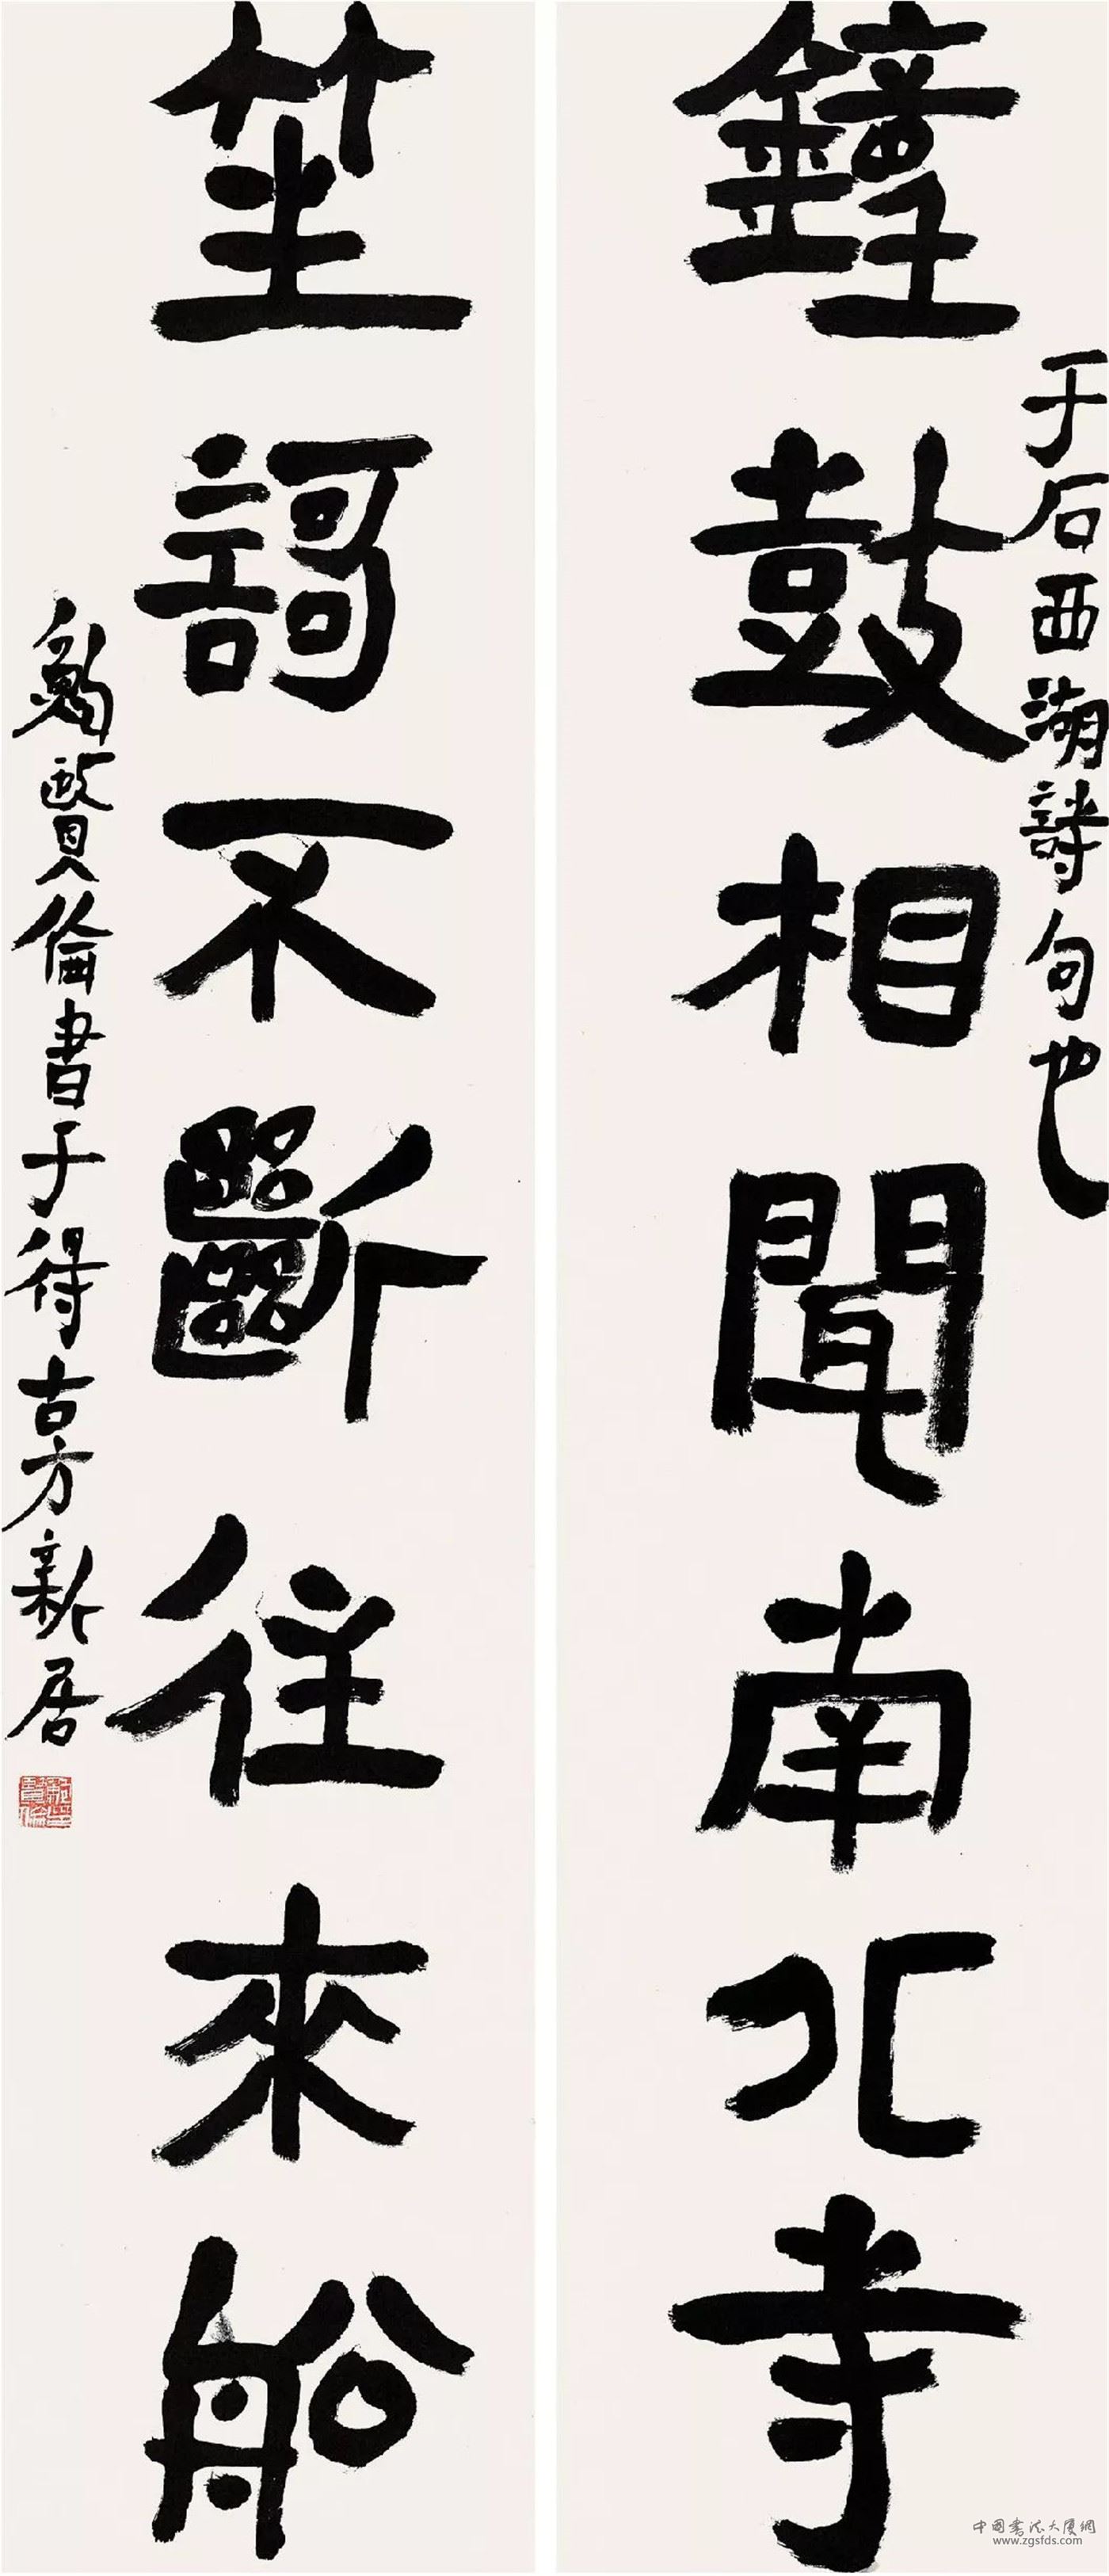 鐘鼓相聞南北寺
于石西湖詩句也
笙謌不斷往來船
鄒賢倫書于得古方新居
中國書法大廈網
www.zgsfds.com